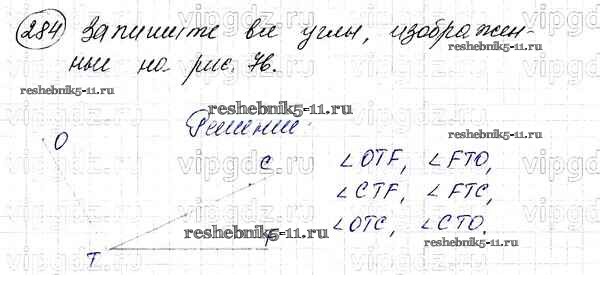 284 Запишите все углы, изображен-
ные на рис. 76.
Решение:
O
C
T
F
∠OTF, ∠FTO,
∠CTF, ∠FTC,
∠OTC, ∠CTO.
reshebnik5-11.ru
reshebnik5-11.ru
reshebnik5-11.ru
reshebnik5-11.ru
reshebnik5-11.ru
vipgdz.ru
vipgdz.ru
vipgdz.ru